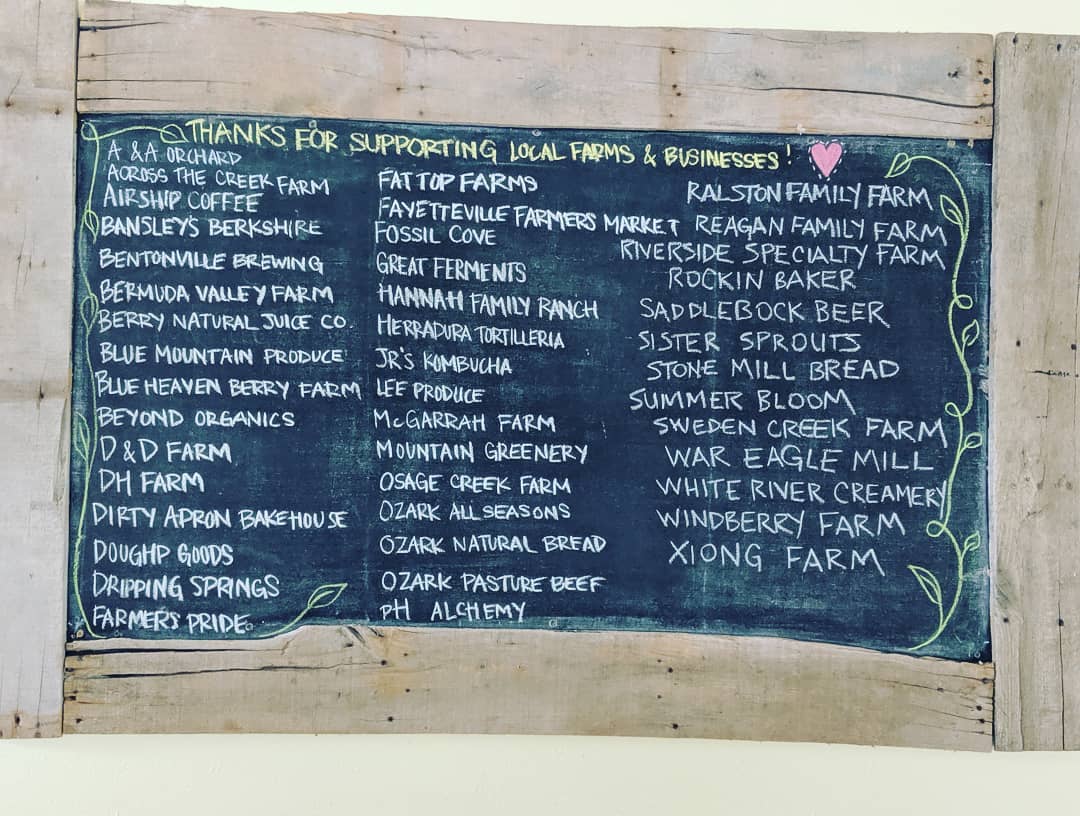 THANKS FOR SUPPORTING LOCAL FARMS & BUSINESSES!
A & A ORCHARD
ACROSS THE CREEK FARM
AIRSHIP COFFEE
BANSLEY'S BERKSHIRE
BENTONVILLE BREWING
BERMUDA VALLEY FARM
BERRY NATURAL JUICE CO.
BLUE MOUNTAIN PRODUCE
BLUE HEAVEN BERRY FARM
BEYOND ORGANICS
D & D FARM
DH FARM
DIRTY APRON BAKEHOUSE
DOUGHP GOODS
DRIPPING SPRINGS
FARMER'S PRIDE
FAT TOP FARMS
FAYETTEVILLE FARMERS MARKET
FOSSIL COVE
GREAT FERMENTS
HANNAH FAMILY RANCH
HERRADURA TORTILLERIA
JR'S KOMBUCHA
LEE PRODUCE
McGARRAH FARM
MOUNTAIN GREENERY
OSAGE CREEK FARM
OZARK ALL SEASONS
OZARK NATURAL BREAD
OZARK PASTURE BEEF
pH ALCHEMY
RALSTON FAMILY FARM
REAGAN FAMILY FARM
RIVERSIDE SPECIALTY FARM
ROCKIN BAKER
SADDLEBOCK BEER
SISTER SPROUTS
STONE MILL BREAD
SUMMER BLOOM
SWEDEN CREEK FARM
WAR EAGLE MILL
WHITE RIVER CREAMERY
WINDBERRY FARM
XIONG FARM